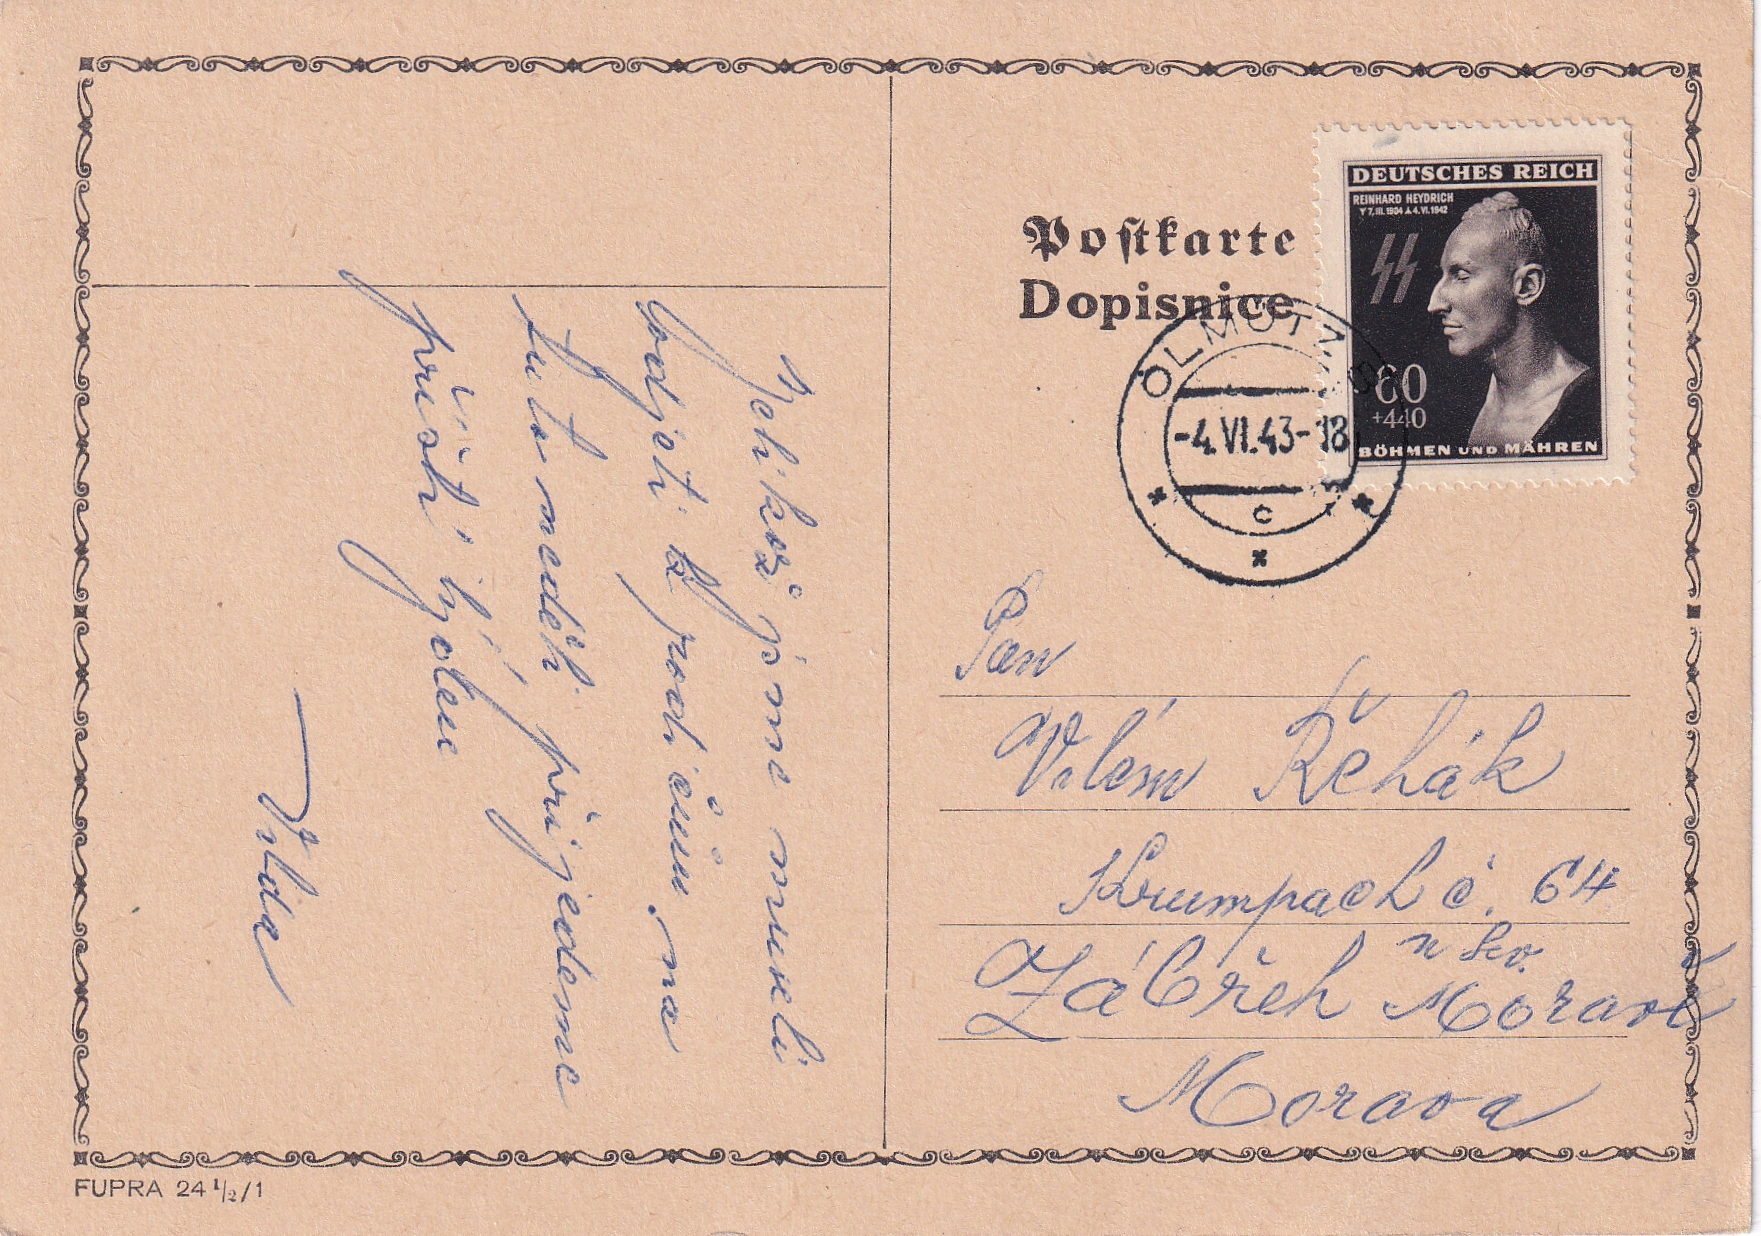 Postkarte
Dopisnice
DEUTSCHES REICH
REINHARD HEYDRICH
7. III. 1904 4. VI. 1942
60
+440
BÖHMEN UND MÄHREN
OLMÜTZ
-4.VI.43-18
C
Pan
Vilém Řehák
Krumpach č. 64
Zábřeh n sev. Moravě
Morava
Jelikož jsme museli
odjeti k rodičům na
tuto neděli přijedeme
příští týden
Vilda
FUPRA 24 1/2/1